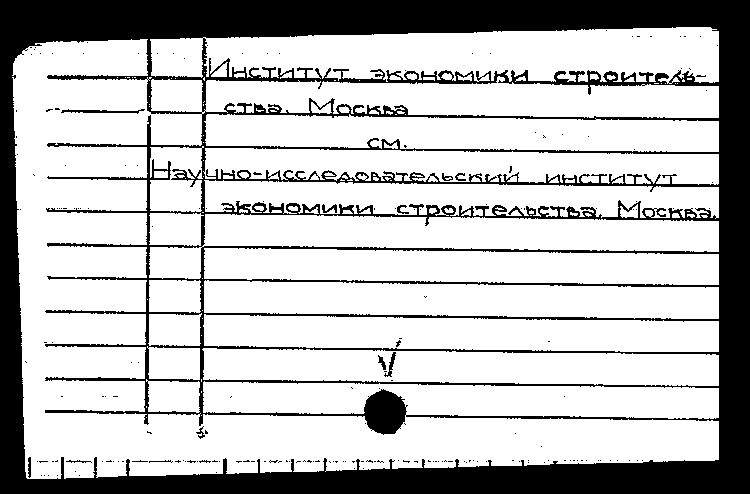 Институт экономики строитель-
ства. Москва
см.
Научно-исследовательский институт
экономики строительства. Москва.